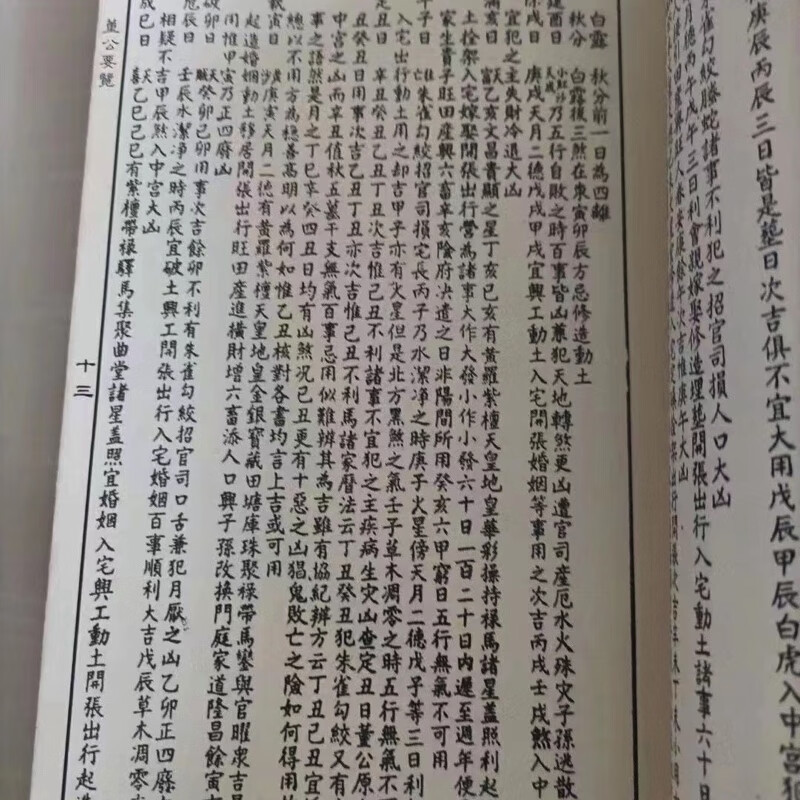 庚辰丙辰三日皆是墓日次吉俱不宜大用戊辰甲辰白虎入中宮犯
朱雀勾絞螣蛇諸事不利犯之招官司損人口大凶
月德丙午戊午三日利會親嫁娶修造埋葬開張出行入宅動土諸事六十日
白露 秋分前一日為四離
秋分 白露後三煞在東寅卯辰方忌修造動土
建酉日 小紅沙天成乃五行自敗之時百事皆凶兼犯天地轉煞更凶遭官司產厄水火殊灾子孫逃散
除戌日 庚戌天月二德戊戌甲戌宜興工動土入宅開張婚姻等事用之次吉丙戌壬戌煞入中
宜犯之主失財冷退大凶
滿亥日 天富乙亥文昌貴顯之星丁亥己亥有黃羅紫檀天皇地皇華彩操持祿馬諸星蓋照利起
土拴架入宅嫁娶開張出行營為諸事大作大發小作小發六十日一百二十日內遲至週年便
家生貴子旺田產興六畜辛亥陰府決遣之日非陽間所用癸亥六甲窮日五行無氣不可用
子日 往亡朱雀勾絞招官司損宅長丙子乃水潔淨之時庚子火星傍天月二德戊子等三日利
入宅出行動土用之却吉甲子亦有火星但是北方黑煞之氣壬子草木凋零之時五行無氣不
丑日 辛丑癸丑乙丑丁丑次吉惟己丑不利諸事不宜犯之主疾病生灾凶查定丑日董公原
丑癸丑日用事次吉乙丑丁丑亦次吉惟己丑不利馬諸家曆法云丁丑癸丑犯朱雀勾絞又有
中宮之凶而辛丑值秋五墓干支無氣百事忌用似難辨其為吉雖有協紀辨方云丁丑己丑宜
事之語然是月之丁巳辛癸四丑日均有凶煞況己丑更有十惡之凶猖鬼敗亡之險如何得用
總以不用方為穩善高明以為何如惟乙丑核對各書均言上吉或可用
寅日 黃沙庚寅天月二德有黃羅紫檀天皇地皇金銀寶藏田塘庫珠聚祿帶馬鑾與官曜眾吉
起造婚姻動土移居開張出行旺田產進橫財增六畜添人口興子孫改換門庭家道隆昌餘寅
用惟甲寅乃正四廢凶
破卯日 天賊癸卯己卯用事次吉餘卯不利有朱雀勾絞招官司口舌兼犯月厭之凶乙卯正四廢
危辰日 壬辰水潔淨之時丙辰宜破土興工開張出行入宅婚姻百事順利大吉戊辰草木凋零
相疑不吉甲辰煞入中宮大凶
成巳日 天喜乙巳己巳有紫檀帶祿驛馬集聚曲堂諸星蓋照宜婚姻入宅興工動土開張出行起造
董公要覽
十三